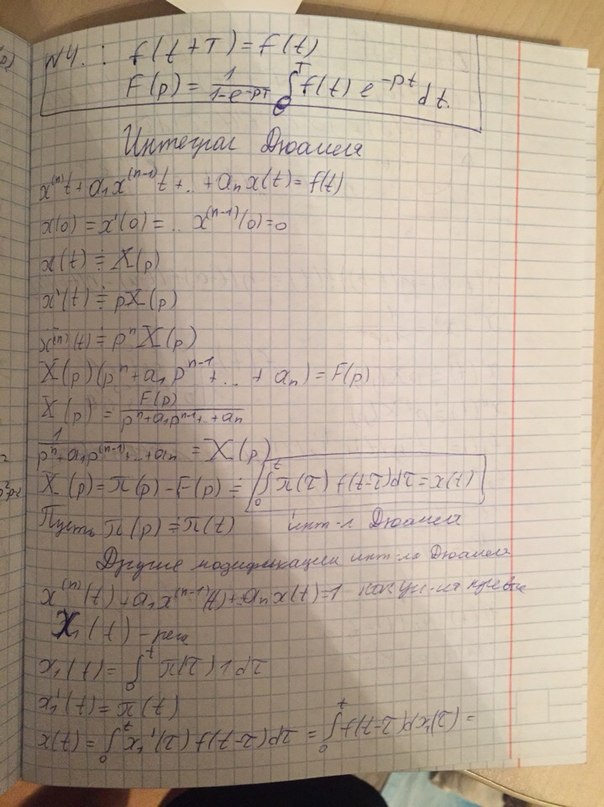 N4. : f(t+T) = f(t)
F(p) = \frac{1}{1-e^{-pT}} \int_0^T f(t) e^{-pt} dt.
Интеграл Дюамеля
x^{(n)}t + a_1x^{(n-1)}t + .. + a_n x(t) = f(t)
x(0) = x'(0) = .. x^{(n-1)}(0) = 0
x(t) ≓ X(p)
x'(t) ≓ pX(p)
x^{(n)}(t) ≓ p^n X(p)
X(p)(p^n + a_1p^{n-1} + ... + a_n) = F(p)
X(p) = \frac{F(p)}{p^n+a_1p^{n-1}+..+a_n}
\frac{1}{p^n+a_1p^{(n-1)}+..+a_n} = X(p)
X(p) = π(p) - F(p) ≓ \int_0^t π(τ) f(t-τ)dτ = x(t)
Пусть π(p) ≓ π(t) инт-л Дюамеля
Другие модификации инт-ла Дюамеля
x^{(n)}(t) + a_1x^{(n-1)}(t) + a_n x(t) = 1
X_1(t) - реш
x_1(t) = \int_0^t π(τ) 1 dτ
x_1'(t) = π(t)
x(t) = \int_0^t x_1'(τ) f(t-τ)dτ = \int_0^t f(t-τ)dx_1(τ) =